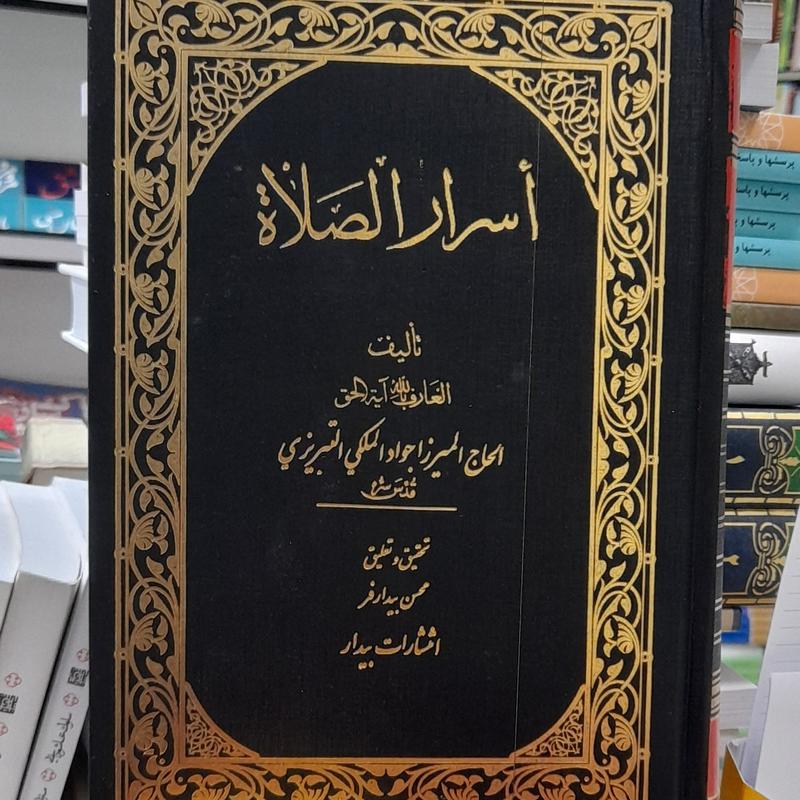 أسرار الصلاة
تأليف
العارف بالله آية الحق
الحاج الميرزا جواد الملكي التبريزي
قدس سره
تحقيق وتعليق
محسن بيدارفر
انتشارات بيدار
پرسشها و پاسخ
پرسشها و پاسخ
پرسشها و پا
پرسشها و